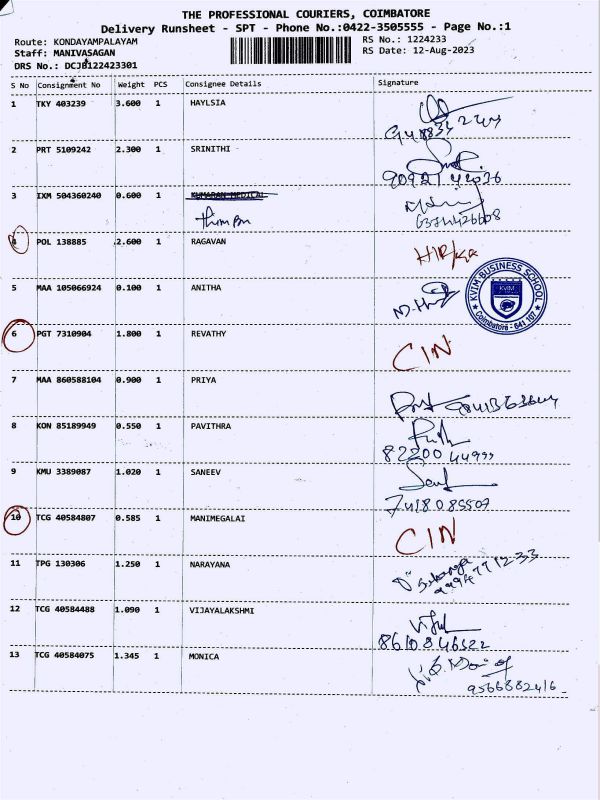 THE PROFESSIONAL COURIERS, COIMBATORE
Delivery Runsheet - SPT - Phone No.:0422-3505555 - Page No.:1
Route: KONDAYAMPALAYAM
Staff: MANIVASAGAN
DRS No.: DCJB122423301
RS No.: 1224233
RS Date: 12-Aug-2023
S No Consignment No Weight PCS Consignee Details Signature
1 TKY 403239 3.600 1 HAYLSIA
2 PRT 5109242 2.300 1 SRINITHI -
3 IXM 504360240 0.600 1 KUMARAN MEDICAL
4 POL 138885 2.600 1 RAGAVAN
5 MAA 105066924 0.100 1 ANITHA
KVIM BUSINESS SCHOOL
KVIM
Coimbatore - 641 107
6 PGT 7310904 1.800 1 REVATHY CIN
7 MAA 860588104 0.900 1 PRIYA
8 KON 85189949 0.550 1 PAVITHRA
82200 44999
9 KMU 3389087 1.020 1 SANEEV
7418085507
10 TCG 40584807 0.585 1 MANIMEGALAI CIN
11 TPG 130306 1.250 1 NARAYANA
12 TCG 40584488 1.090 1 VIJAYALAKSHMI
8610846522
13 TCG 40584075 1.345 1 MONICA
9566882416